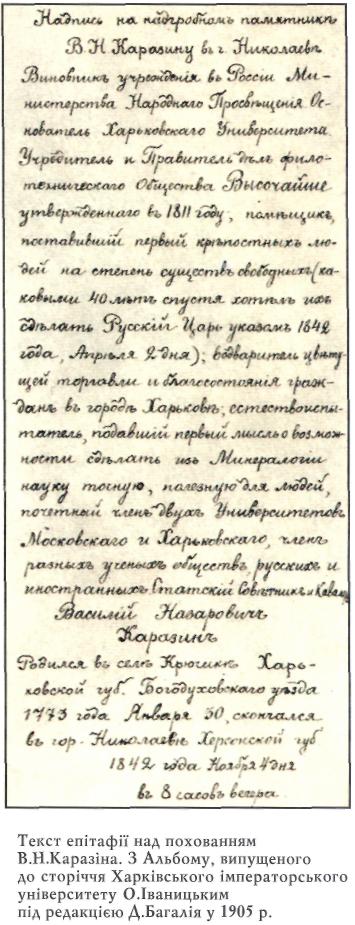 Надпись на надгробномъ памятникѣ
В.Н. Каразину въ г. Николаевѣ
Виновникъ учрежденія въ Россіи Ми-
нистерства Народнаго Просвѣщенія Ос-
нователь Харьковскаго Университета
Учредитель и Правитель дѣлъ фило-
техническаго Общества Высочайше
утвержденнаго въ 1811 году, помѣщикъ,
поставившій первый крѣпостныхъ лю-
дей на степень существъ свободныхъ (ка-
ковыми 40 лѣтъ спустя хотѣлъ ихъ
сдѣлать Русскій Царь указомъ 1842
года, Апрѣля 2 дня); водваритель цвѣту-
щей торговли и благосостоянія граж-
данъ въ городѣ Харьковѣ; естествоиспы-
татель, подавшій первый мысль о возмож-
ности сдѣлать изъ Минералогіи
науку точную, полезную для людей,
почетный членъ двухъ Университетовъ
Московскаго и Харьковскаго, членъ
разныхъ ученыхъ обществъ русскихъ и
иностранныхъ Статскій Совѣтникъ и Кавалеръ
Василій Назаровичъ
Каразинъ
Родился въ селѣ Крючикѣ Харь-
ковской губ. Богодуховскаго уѣзда
1773 года Января 30, скончался
въ гор. Николаевѣ Херсонской губ
1842 года Ноября 4 дня
въ 8 часовъ вечера.
Текст епітафії над похованням
В.Н.Каразіна. З Альбому, випущеного
до сторіччя Харківського імператорського
університету О.Іваницьким
під редакцією Д.Багалія у 1905 р.